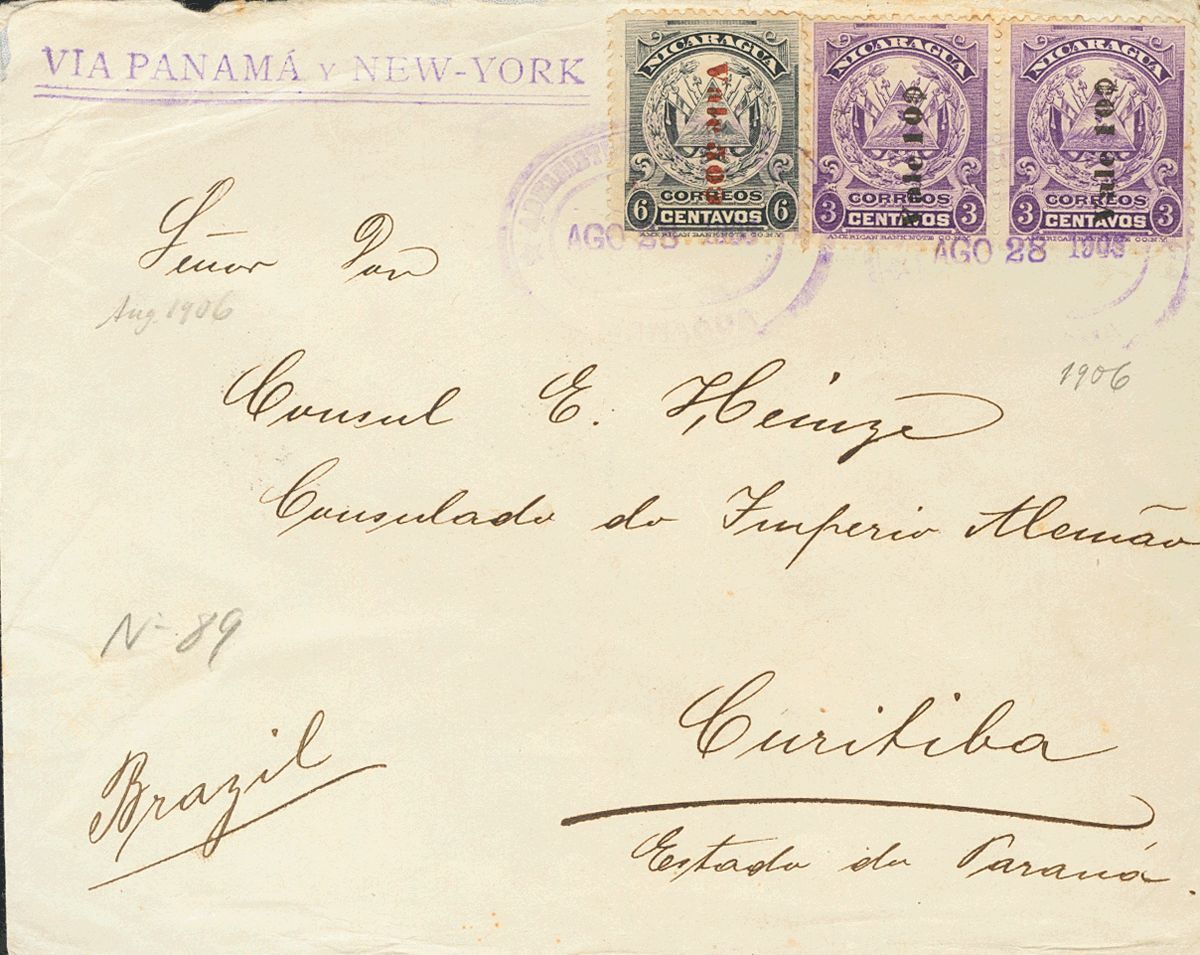 VIA PANAMÁ Y NEW-YORK
NICARAGUA
CORREOS
6 CENTAVOS 6
AMERICAN BANK NOTE CO. N.Y.
NICARAGUA
Vale 10¢
CORREOS
3 CENTAVOS 3
AMERICAN BANK NOTE CO. N.Y.
NICARAGUA
Vale 10¢
CORREOS
3 CENTAVOS 3
AMERICAN BANK NOTE CO. N.Y.
AGO 28
AGO 28
Señor Don
Aug. 1906
Consul E. Heinze
1906
Consulado do Imperio Alemão
N- 89
Curitiba
Brazil
Estado do Paraná.